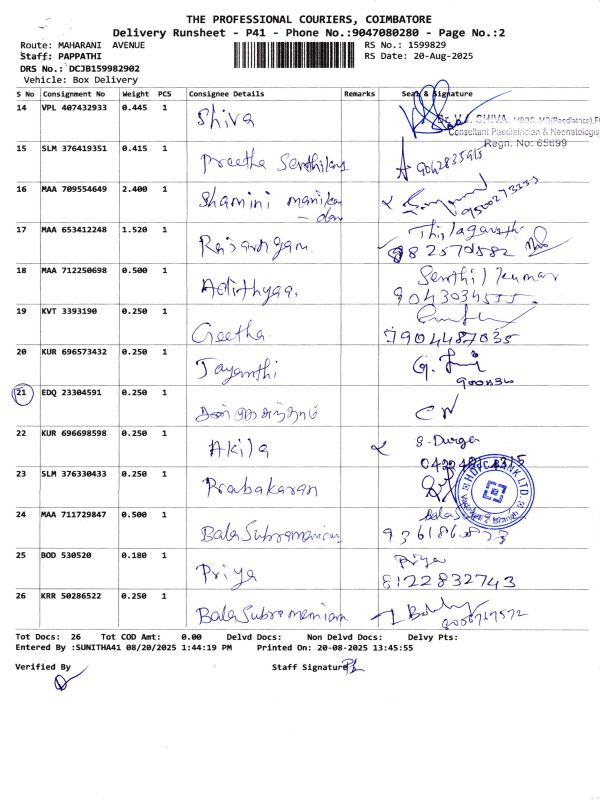 THE PROFESSIONAL COURIERS, COIMBATORE
Delivery Runsheet - P41 - Phone No.:9047080280 - Page No.:2
Route: MAHARANI AVENUE RS No.: 1599829
Staff: PAPPATHI RS Date: 20-Aug-2025
DRS No.: DCJB159982902
Vehicle: Box Delivery
S No Consignment No Weight PCS Consignee Details Remarks Seal & Signature
14 VPL 407432933 0.445 1 Shiva
SHIVA, MBBS, MD(Paediatrics)
Consultant Paediatrician & Neonatologis
Regn. No: 65699
15 SLM 376419351 0.415 1 Preetha 9042835915
16 MAA 709554649 2.400 1 Shamini
17 MAA 653412248 1.520 1
18 MAA 712250698 0.500 1 Adithyaa. Senthil kumar
19 KVT 3393190 0.250 1 Geetha. 7904487035
20 KUR 696573432 0.250 1 Jayanthi
21 EDQ 23304591 0.250 1
22 KUR 696698598 0.250 1 Akila S. Durga
23 SLM 376330433 0.250 1 Prabakaran
HDFC BANK LTD.
24 MAA 711729847 0.500 1 BalaSubramanian
25 BOD 530520 0.180 1 Priya Priya
8122832743
26 KRR 50286522 0.250 1
Tot Docs: 26 Tot COD Amt: 0.00 Delvd Docs: Non Delvd Docs: Delvy Pts:
Entered By :SUNITHA41 08/20/2025 1:44:19 PM Printed On: 20-08-2025 13:45:55
Verified By Staff Signature